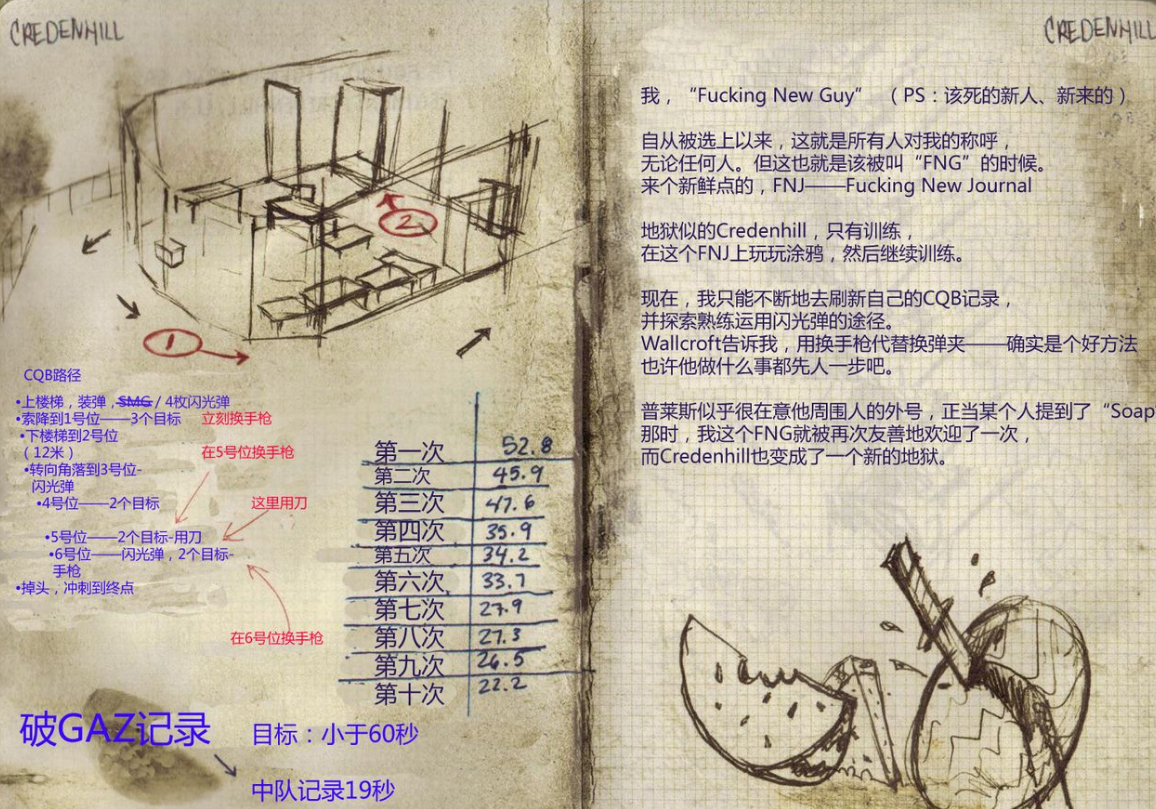 CREDENHILL
②
①
CQB路径
•上楼梯，装弹，SMG / 4枚闪光弹
•索降到1号位——3个目标 立刻换手枪
•下楼梯到2号位
（12米） 在5号位换手枪
•转向角落到3号位-
闪光弹
•4号位——2个目标 这里用刀
•5号位——2个目标-用刀
•6号位——闪光弹，2个目标-
手枪
•掉头，冲刺到终点
在6号位换手枪
第一次 52.8
第二次 45.9
第三次 47.6
第四次 35.9
第五次 34.2
第六次 33.7
第七次 27.9
第八次 27.3
第九次 26.5
第十次 22.2
破GAZ记录 目标：小于60秒
中队记录19秒
CREDENHILL
我，“Fucking New Guy” （PS：该死的新人、新来的）
自从被选上以来，这就是所有人对我的称呼，
无论任何人。但这也就是该被叫“FNG”的时候。
来个新鲜点的，FNJ——Fucking New Journal
地狱似的Credenhill，只有训练，
在这个FNJ上玩玩涂鸦，然后继续训练。
现在，我只能不断地去刷新自己的CQB记录，
并探索熟练运用闪光弹的途径。
Wallcroft告诉我，用换手枪代替换弹夹——确实是个好方法
也许他做什么事都先人一步吧。
普莱斯似乎很在意他周围人的外号，正当某个人提到了“Soap
那时，我这个FNG就被再次友善地欢迎了一次，
而Credenhill也变成了一个新的地狱。